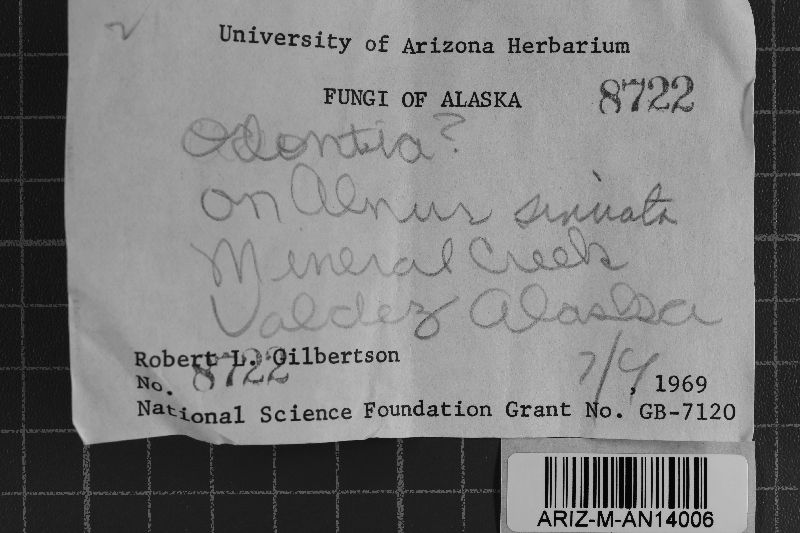 University of Arizona Herbarium
FUNGI OF ALASKA 8722
Odontia?
on Alnus sinuata
Mineral Creek
Valdez Alaska
Robert L. Gilbertson
No. 8722 7/4, 1969
National Science Foundation Grant No. GB-7120
ARIZ-M-AN14006